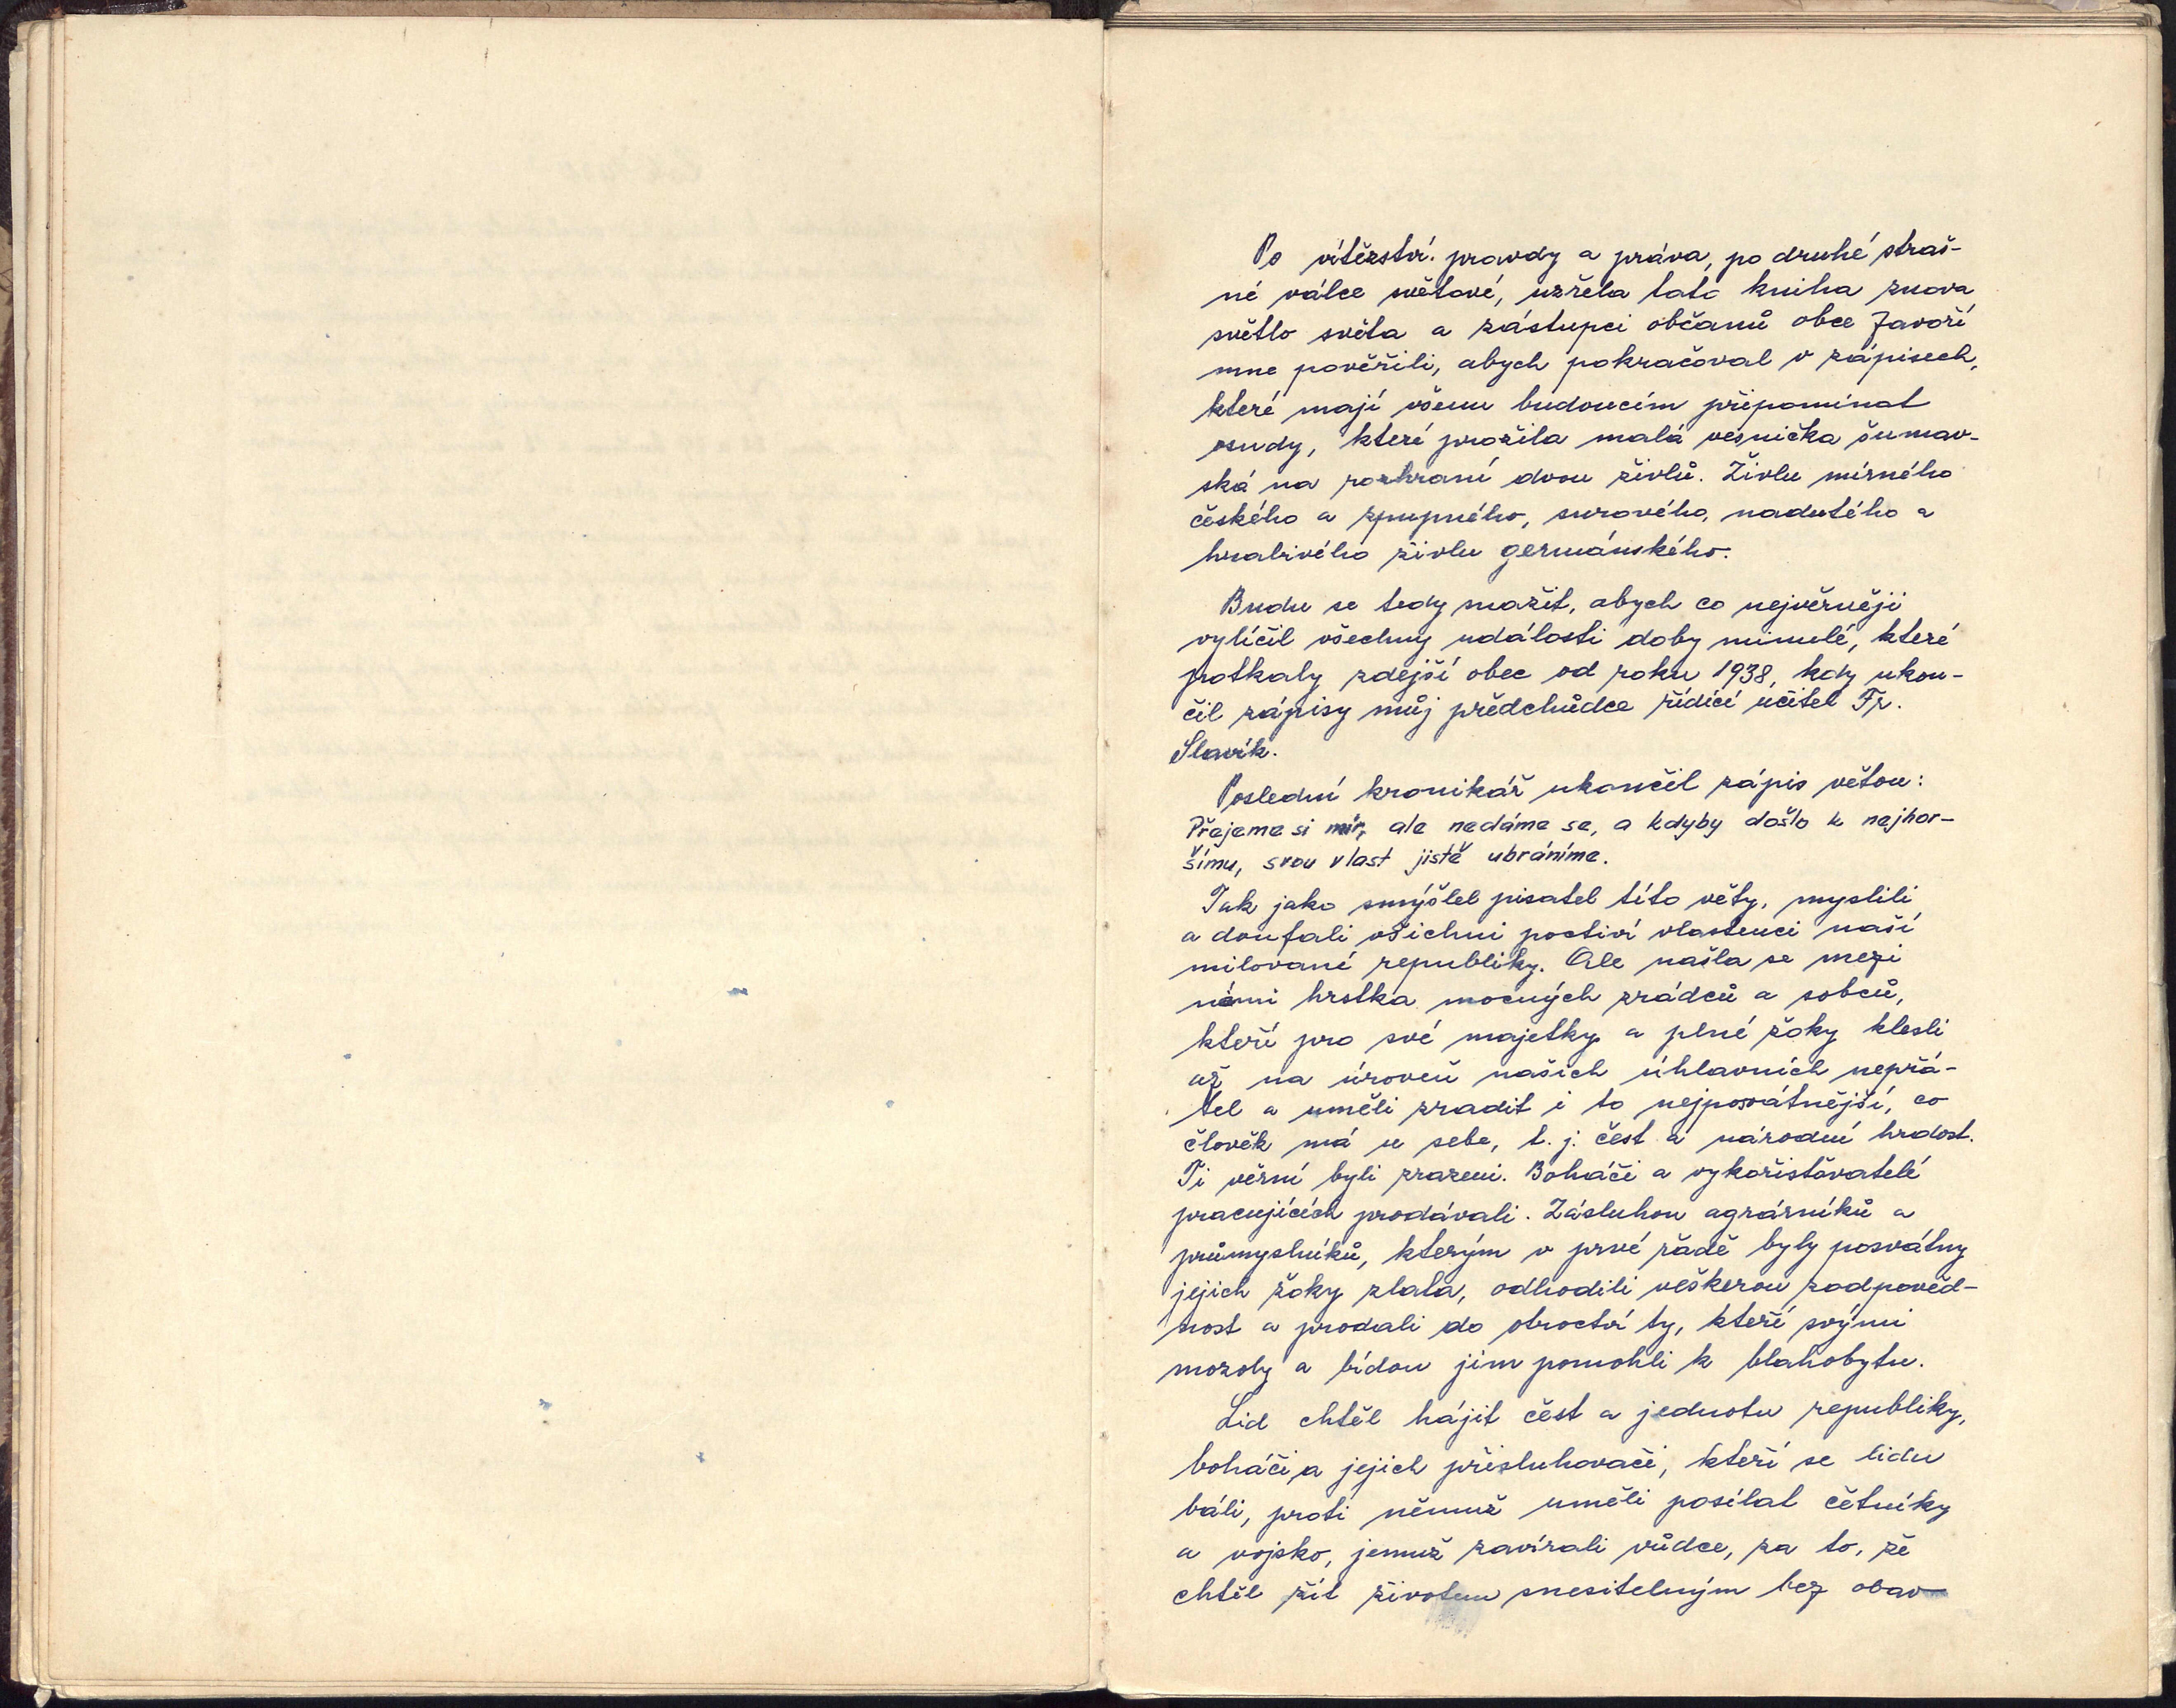 Po vítězství pravdy a práva, po druhé straš-
né válce světové, uzřela tato kniha znova
světlo světa a zástupci občanů obce Javoří
mne pověřili, abych pokračoval v zápisech,
které mají všem budoucím připomínat
osudy, které prožila malá vesnička šumav-
ská na rozhraní dvou živlů. Živlu mírného
českého a zpupného, surového, nadutého a
hrabivého živlu germánského.
Budu se tedy snažit, abych co nejvěrněji
vylíčil všechny události doby minulé, které
potkaly zdejší obec od roku 1938, kdy ukon-
čil zápisy můj předchůdce řídící učitel Fr.
Slavík.
Poslední kronikář ukončil zápis větou:
Přejeme si mír, ale nedáme se, a kdyby došlo k nejhor-
šímu, svou vlast jistě ubráníme.
Tak jako smýšlel pisatel této věty, myslili
a doufali všichni poctiví vlastenci naší
milované republiky. Ale našla se mezi
námi hrstka mocných zrádců a sobců,
kteří pro své majetky a plné žoky klesli
až na úroveň našich úhlavních nepřá-
tel a uměli zradit i to nejposvátnější, co
člověk má u sebe, t. j. čest a národní hrdost.
Ti věrní byli zrazeni. Boháči a vykořisťovatelé
pracujících prodávali. Zásluhou agrárníků a
průmyslníků, kterým v prvé řadě byly posvátny
jejich žoky zlata, odhodili veškerou zodpověd-
nost a prodali do otroctví ty, kteří svými
mozoly a bídou jim pomohli k blahobytu.
Lid chtěl hájit čest a jednotu republiky,
boháči a jejich přisluhovači, kteří se lidu
báli, proti němuž uměli posílat četníky
a vojsko, jemuž zavírali vůdce, za to, že
chtěl žít životem snesitelným bez obav